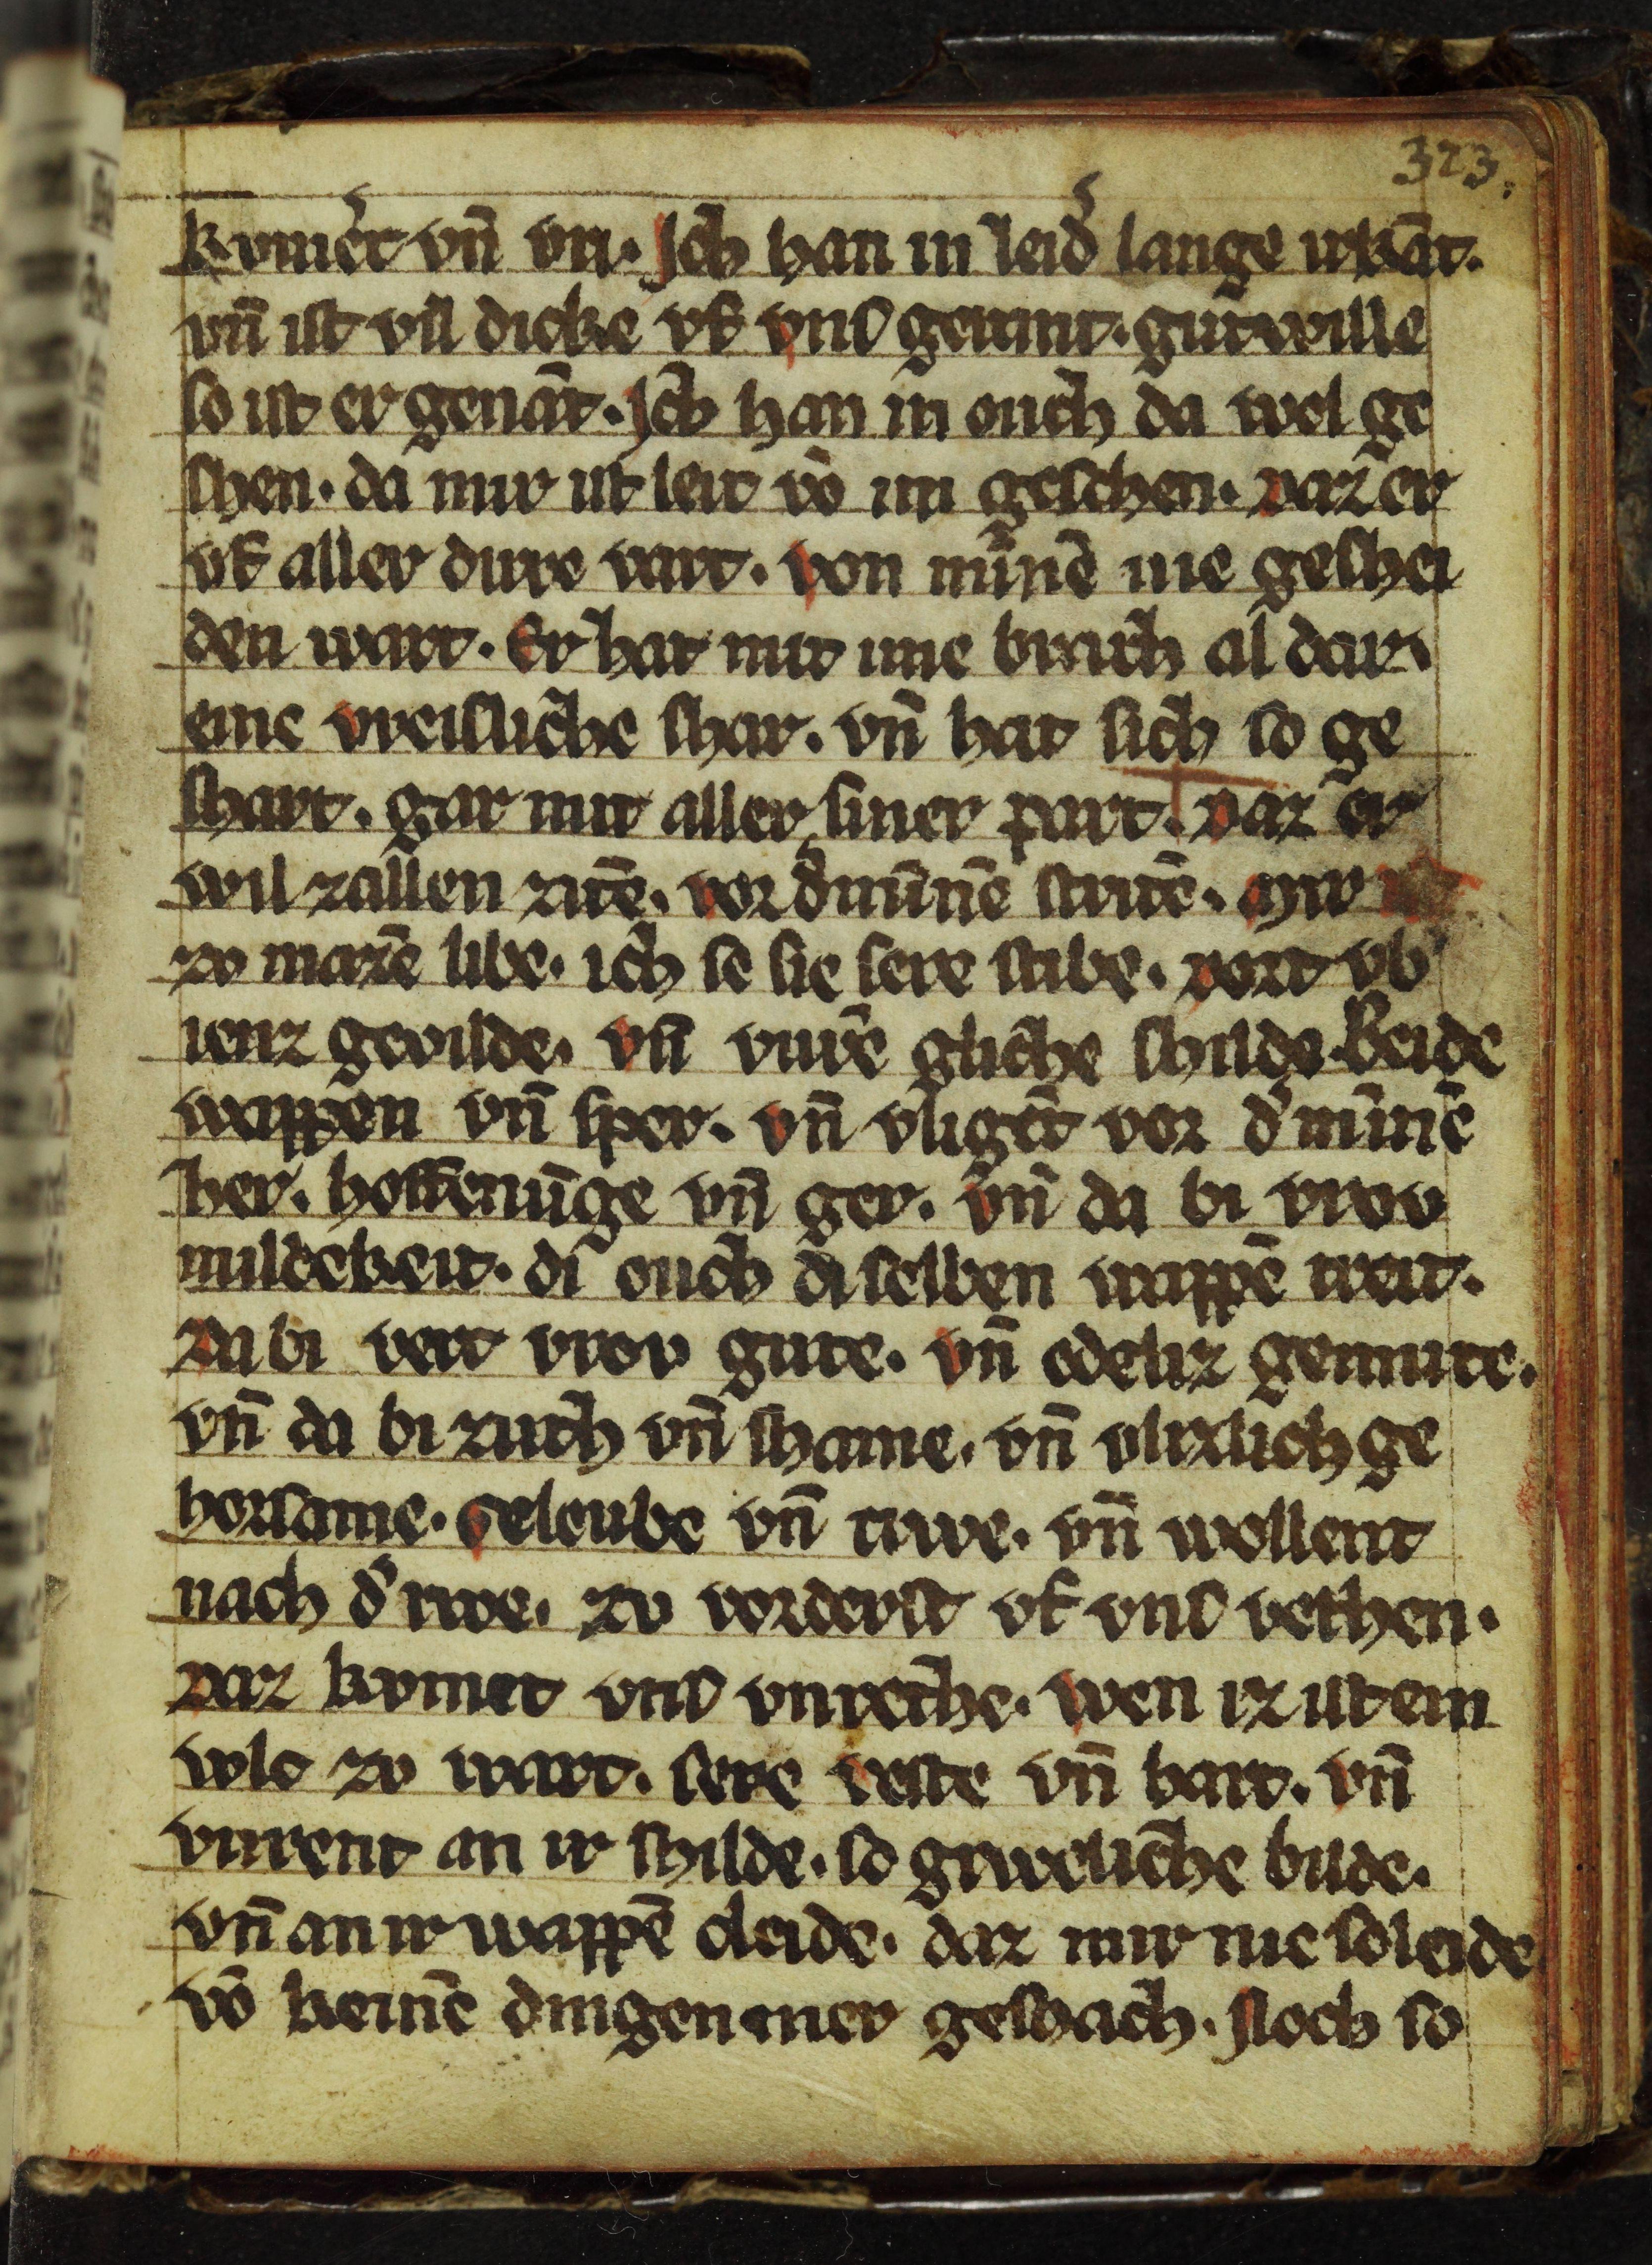 323.
kvmet vñ vri. Ich han in leid͛ lange irkāt.
vñ ist vil dicke vf vns gerant. gutwille
so ist er genāt. Ich han in ouch da wol ge
shen. da mir ist leit vō im geschen. Daz er
vf aller dirre vart. von minnē nie geshei
den wart. Er hat mit ime bracht al dar.
eine vreisliche shar. vñ hat sich so ge
shart. gar mit aller siner part. Daz er
wil zallen zitē. vor d͛ minnē stritē. ayw
zv mazē libe. ich se sie sere stibe. Dort vb͛
ienz gevilde. vñ vurē gliche shilde. Beide
wappen vñ sper. vñ vliget vor d͛ minnē
her. hoffenūge vñ ger. vñ da bi vrov
mildekeit. di ouch di selben wappē treit.
Da bi vert vrov gute. vñ edeliz gemute.
vñ da bi zuch vñ shame. vñ vlizlich ge
horsame. Geloube vñ trwe. vñ wollent
nach d͛ rwe. zv vorderst vf vns vethen.
Daz kvmet vns vnrethe. wen iz ist ein
volc zv wart. sere veste vñ hart. vñ
vurent an ir shilde. so grweliche bilde.
vñ an ir wappē cleide. daz mir nie so leide
vō keinē dingen mer geshach. Noch so